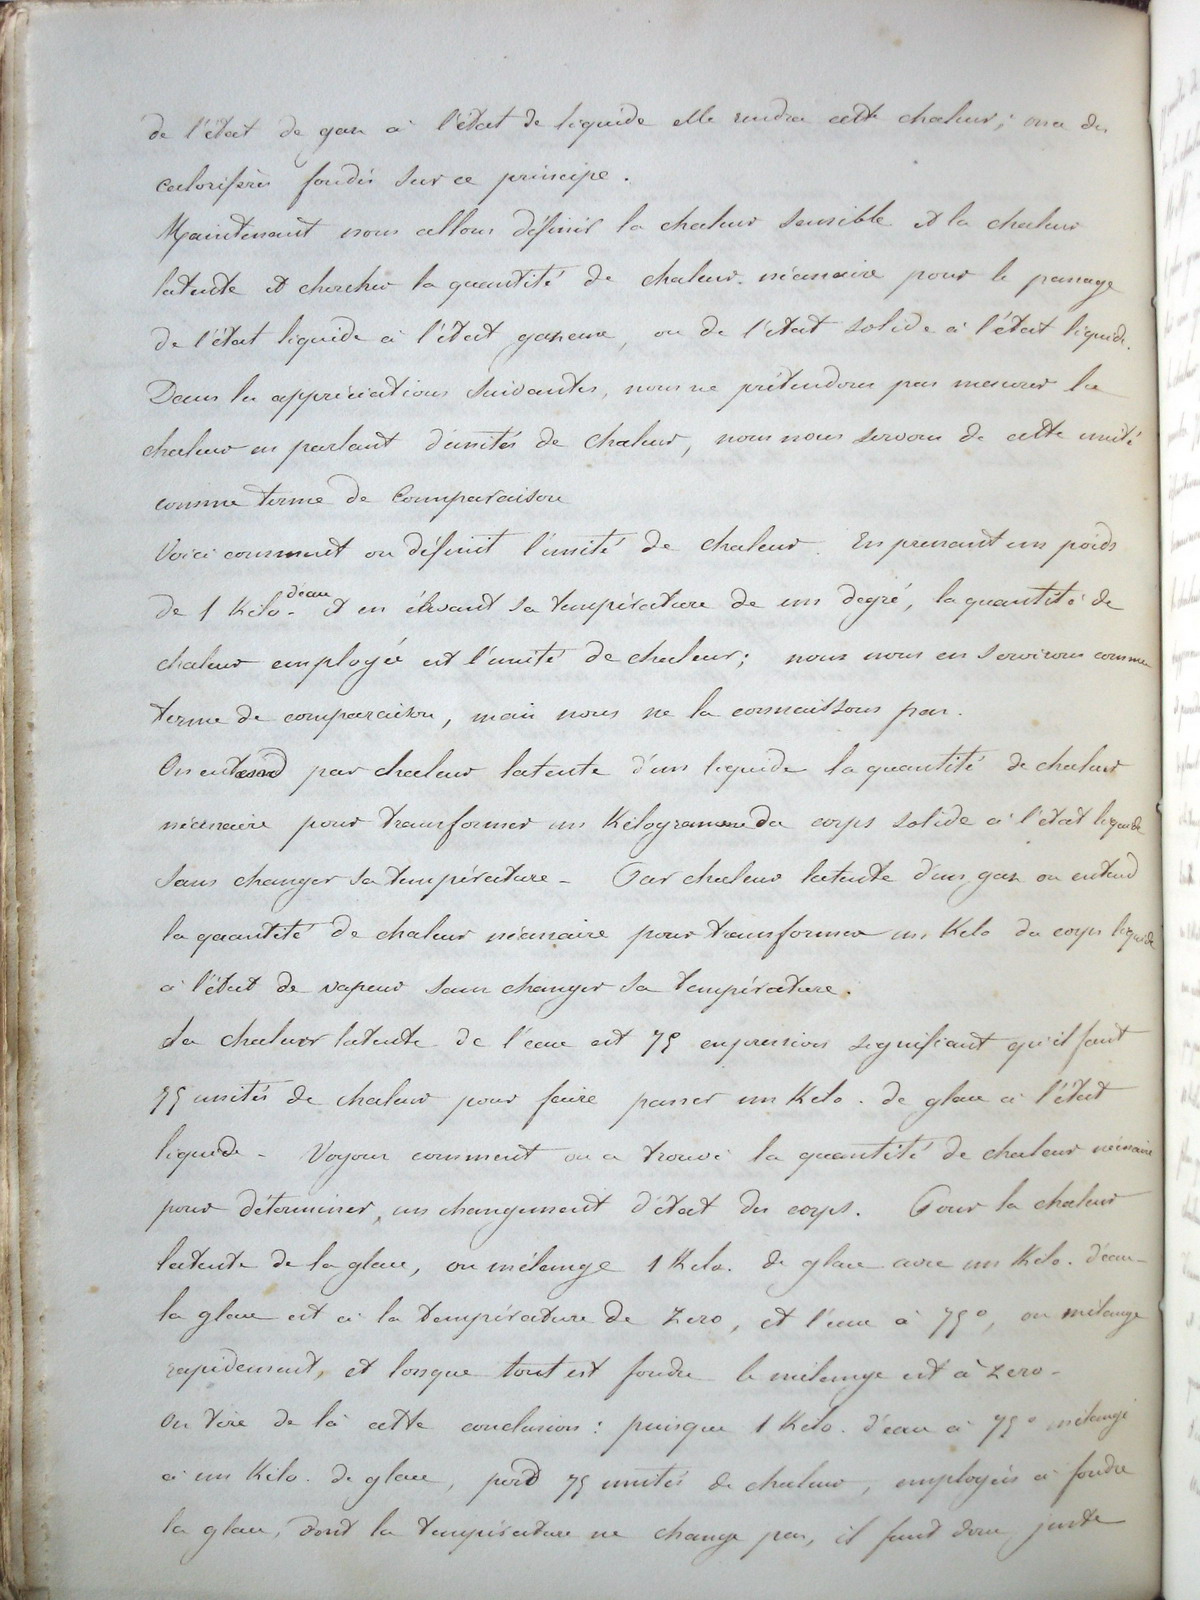 de l'état de gaz à l'état de liquide elle rendra cette chaleur; on a des
calorifères fondés sur ce principe.
Maintenant nous allons définir la chaleur sensible et la chaleur
latente et chercher la quantité de chaleur nécessaire pour le passage
de l'état liquide à l'état gazeux, ou de l'état solide à l'état liquide.
Dans les appréciations suivantes, nous ne prétendons pas mesurer la
chaleur en parlant d'unités de chaleur, nous nous servons de cette unité
comme terme de Comparaison
Voici comment on définit l'unité de chaleur. En prenant un poids
de 1 Kilo. d'eau et en élevant sa température de un degré, la quantité de
chaleur employée est l'unité de chaleur; nous nous en servirons comme
terme de comparaison, mais nous ne la connaissons pas.
On entend par chaleur latente d'un liquide la quantité de chaleur
nécessaire pour transformer un Kilogramme du corps solide à l'état liquide
sans changer sa température - Par chaleur latente d'un gaz on entend
la quantité de chaleur nécessaire pour transformer un Kilo du corps liquide
à l'état de vapeur sans changer sa température.
La chaleur latente de l'eau est 75 expression signifiant qu'il faut
75 unités de chaleur pour faire passer un Kilo. de glace à l'état
liquide - Voyons comment on a trouvé la quantité de chaleur nécessaire
pour déterminer un changement d'état du corps. Pour la chaleur
latente de la glace, on mélange 1 Kilo. de glace avec un Kilo. d'eau -
la glace est à la température de Zero, et l'eau à 75°, on mélange
rapidement, et lorsque tout est fondu le mélange est à Zero -
On tire de là cette conclusion: puisque 1 Kilo. d'eau à 75° mélangé
à un Kilo. de glace, perd 75 unités de chaleur, employées à fondre
la glace, dont la température ne change pas, il faut donc juste